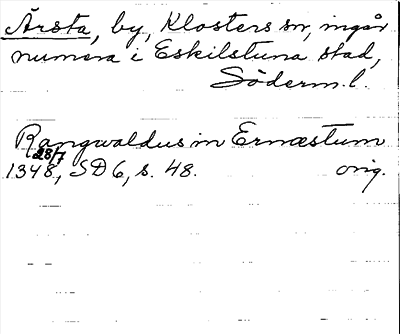 Ärsta, by, Klosters sn, ingår
numera i Eskilstuna stad,
Söderm.l.
Rangwaldus in Ernæstum
28/7
1348, SD 6, s. 48. orig.